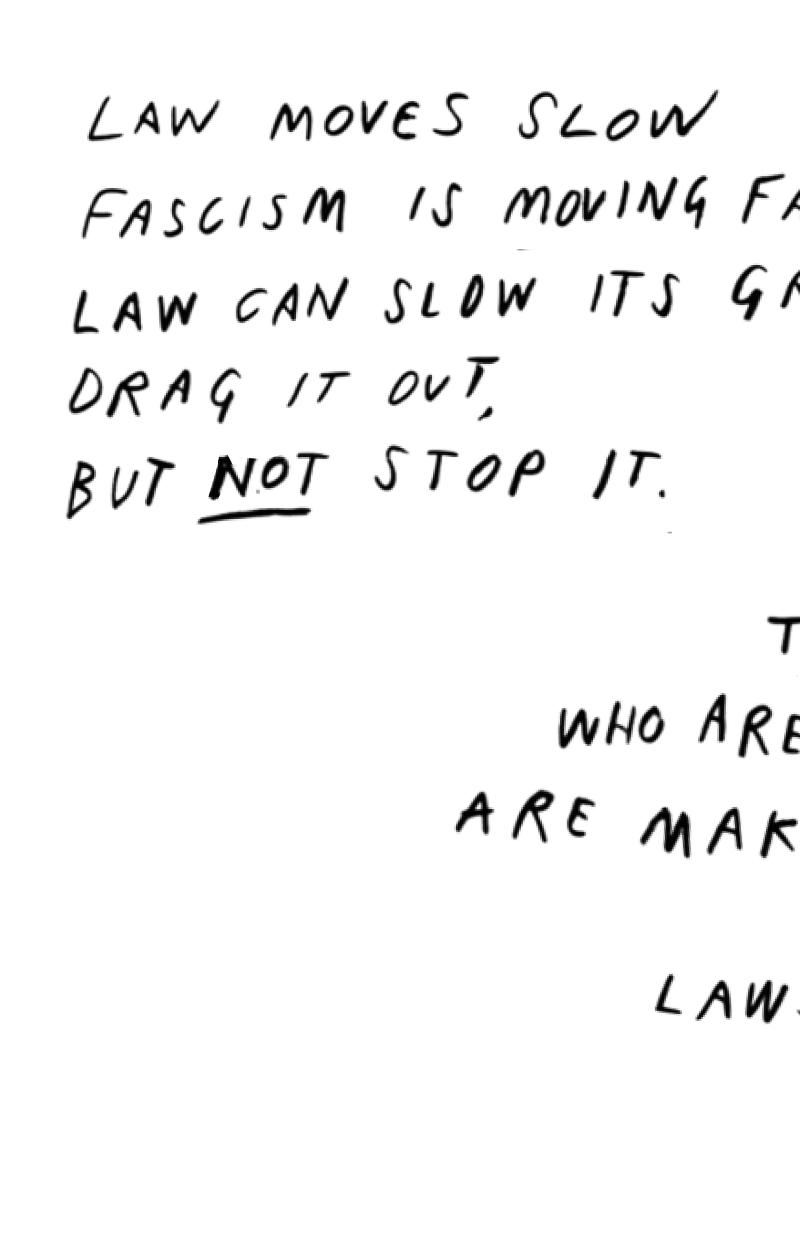 LAW MOVES SLOW
FASCISM IS MOVING
LAW CAN SLOW ITS
DRAG IT OUT,
BUT NOT STOP IT.
WHO ARE
ARE